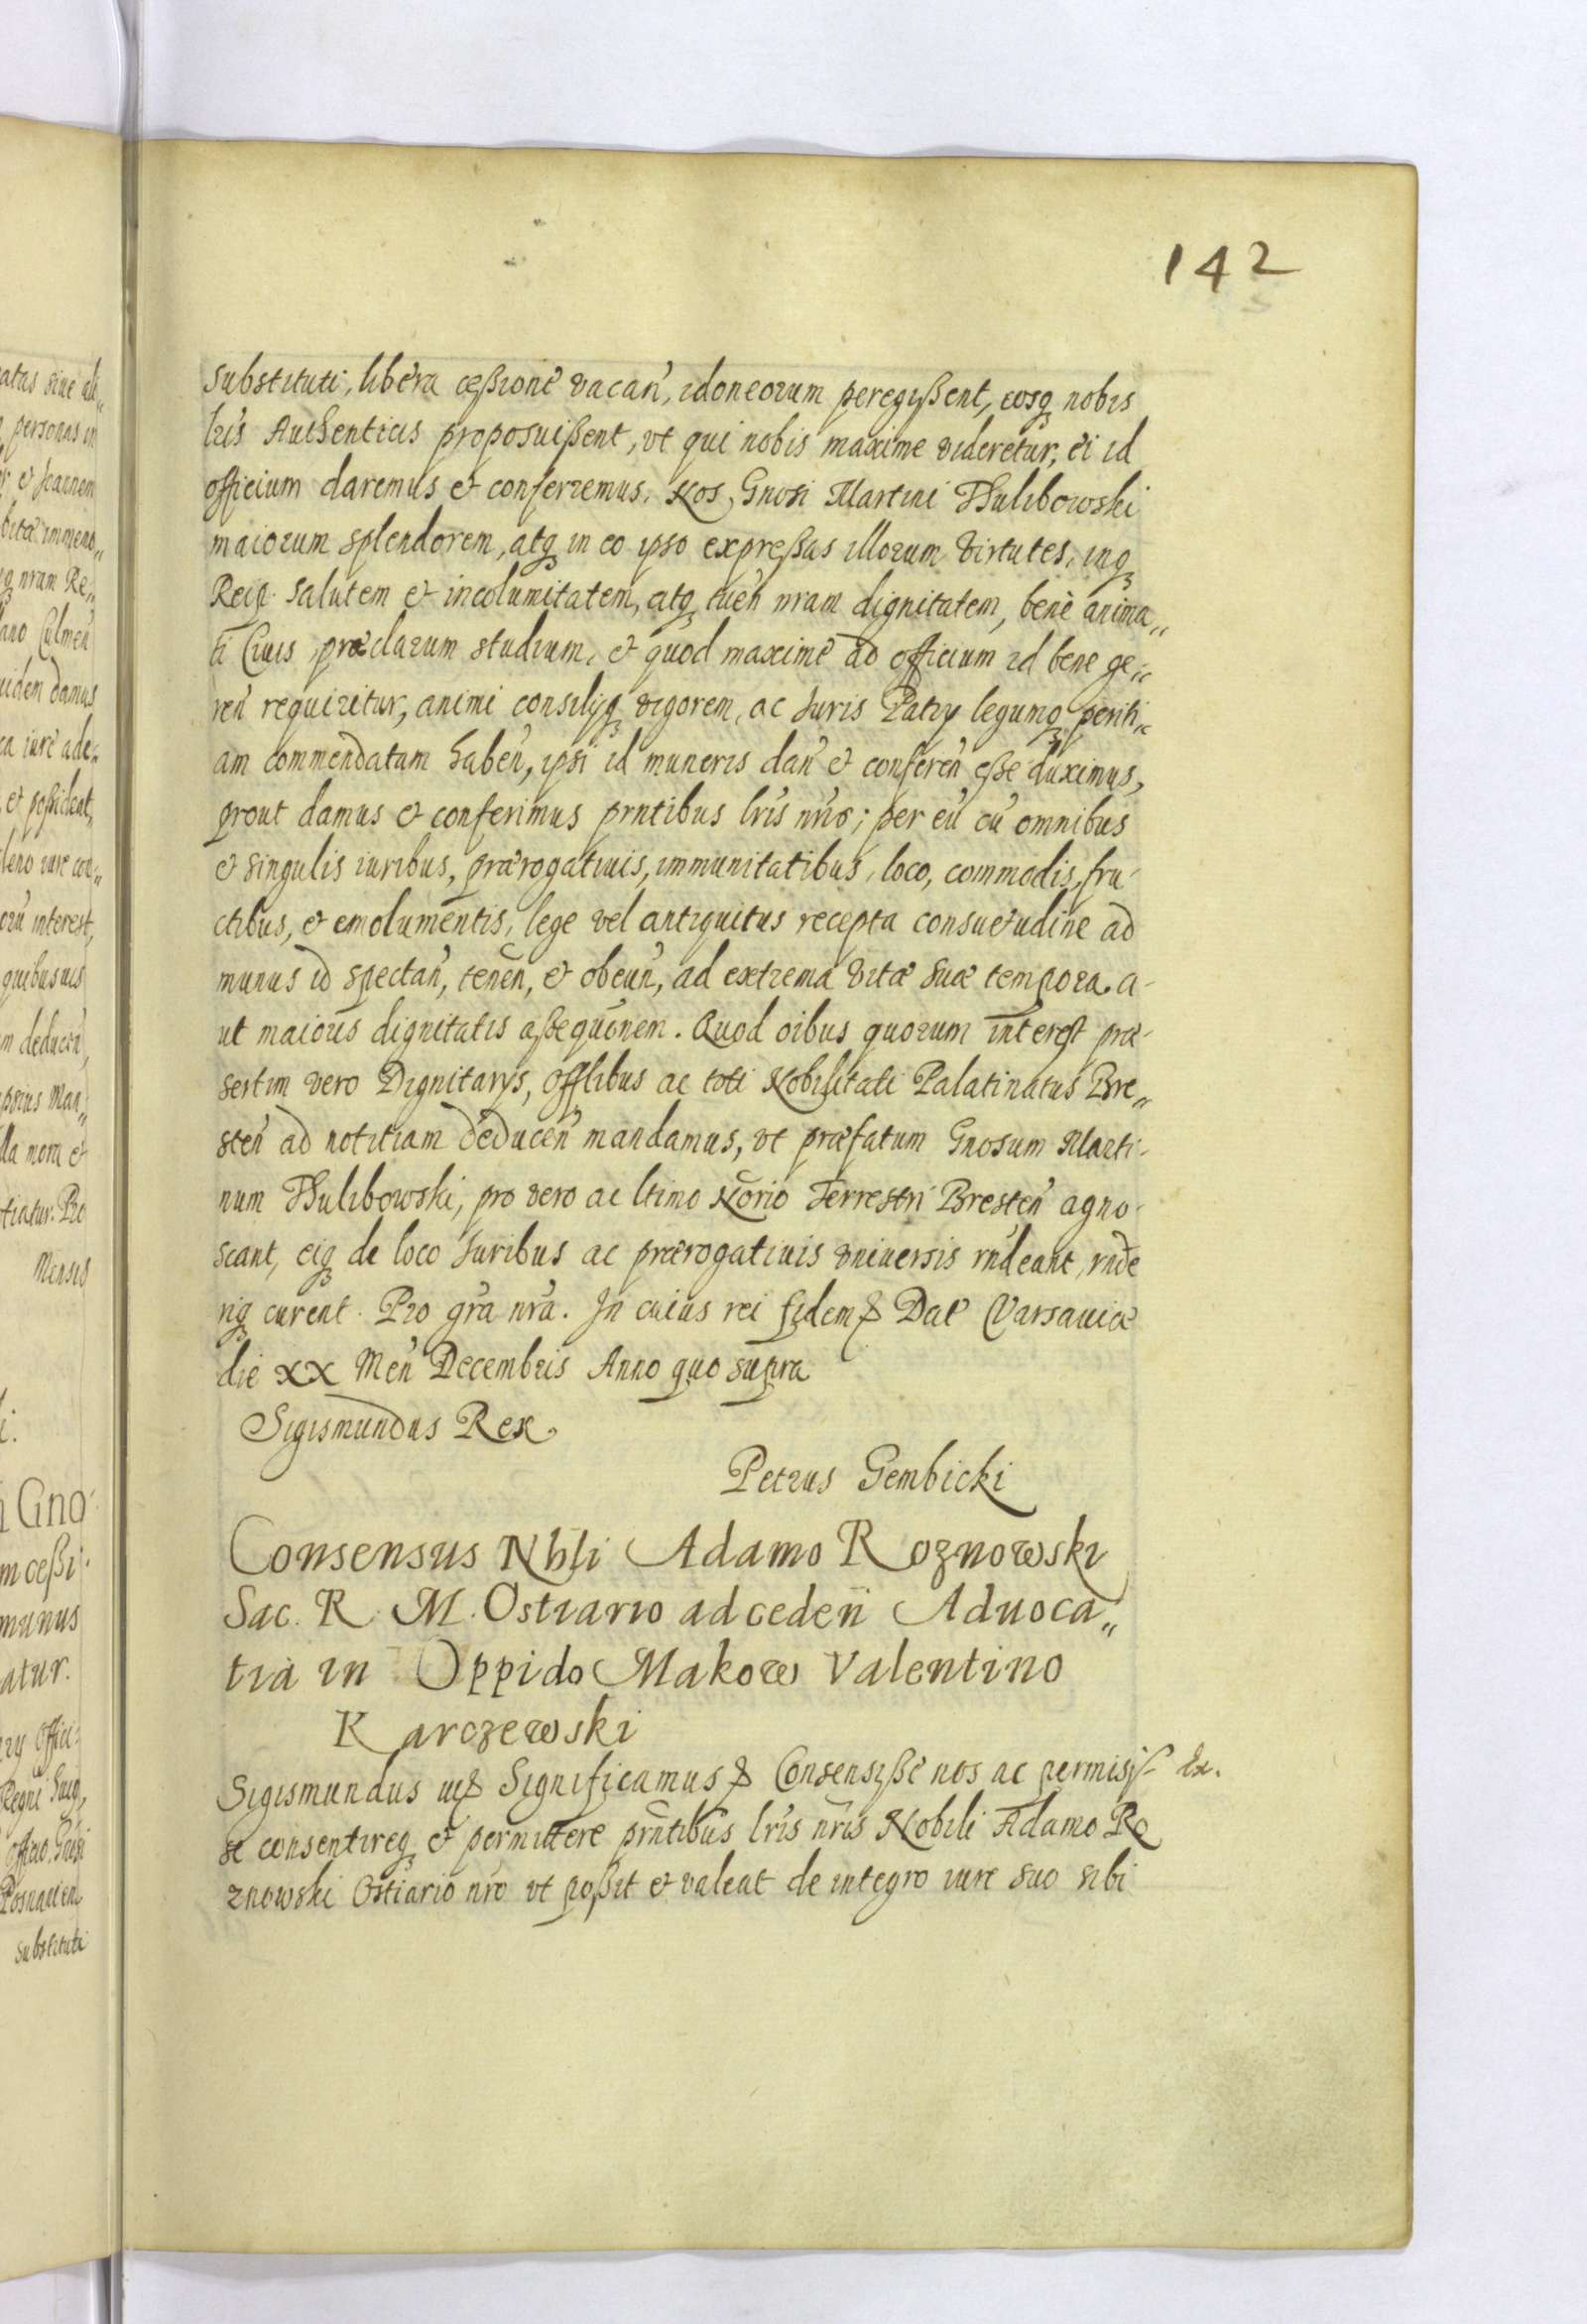 142
substituti, libera ceßione vacań, idoneorum peregißent, eosq nobis
lris Authenticis proposuißent, vt qui nobis maxime videretur, ei id
officium daremus et conferremus. Nos Gnosi Martini Thulibowski
maiorum splendorem, atq in eo ipso expreßas illorum virtutes, inq
Reip. salutem et incolumitatem, atq tueń nram dignitatem, bene anima„
ti Ciuis præclarum studium, et quod maxime ad officium id bene ge„
reń requiritur, animi consilijq vigorem, ac Iuris Patry legumq periti„
am commendatam habeń, ipsi id muneris dań et confereń eße duximus,
prout damus et conferimus prntibus lris nris; per eū cū omnibus
et singulis iuribus, prærogatiuis, immunitatibus, loco, commodis, fru-
ctibus, et emolumentis, lege vel antiquitus recepta consuetudine ad
munus id spectań, teneń, et obeuń, ad extrema vitæ suæ tempora a-
ut maioris dignitatis aßequonem. Quod oibus quorum interest præ-
sertim vero Dignitarys, Offlibus ac toti Nobilitati Palatinatus Bre„
steń ad notitiam deduceń mandamus, vt præfatum Gnosum Marti-
num Thulibowski, pro vero ac ltimo Norio Terrestri Bresteń agno-
scant, eiq de loco Iuribus ac prærogatiuis vniuersis rndeant, rnde
riq curent. Pro gra nra. In cuius rei fidem & Dat Varsauiæ
die XX Meń Decembris Anno quo supra
Sigismundus Rex.
Petrus Gembicki
Consensus Nbli Adamo Roznowski
Sac. R. M. Ostiario ad cedeń Aduoca„
tia in Oppido Makow Valentino
Karczewski
Sigismundus & Significamus & Consensiße nos ac permisis- Ex.
se consentireq et permittere prntibus lris nris Nobili Adamo Ro
znowski Ostiario nro vt poßit et valeat de integro iure suo sibi
atas siue ali„
personas in
et Joannem
nram Re„
Culmeń
idem damus
iure ade„
et poßideat,
pleno iure
interest,
quibusuis
deduceń,
mora et
Pro
Mensis
Gno
ceßi
munus
atur.
Offici
Regni
officio
substituti